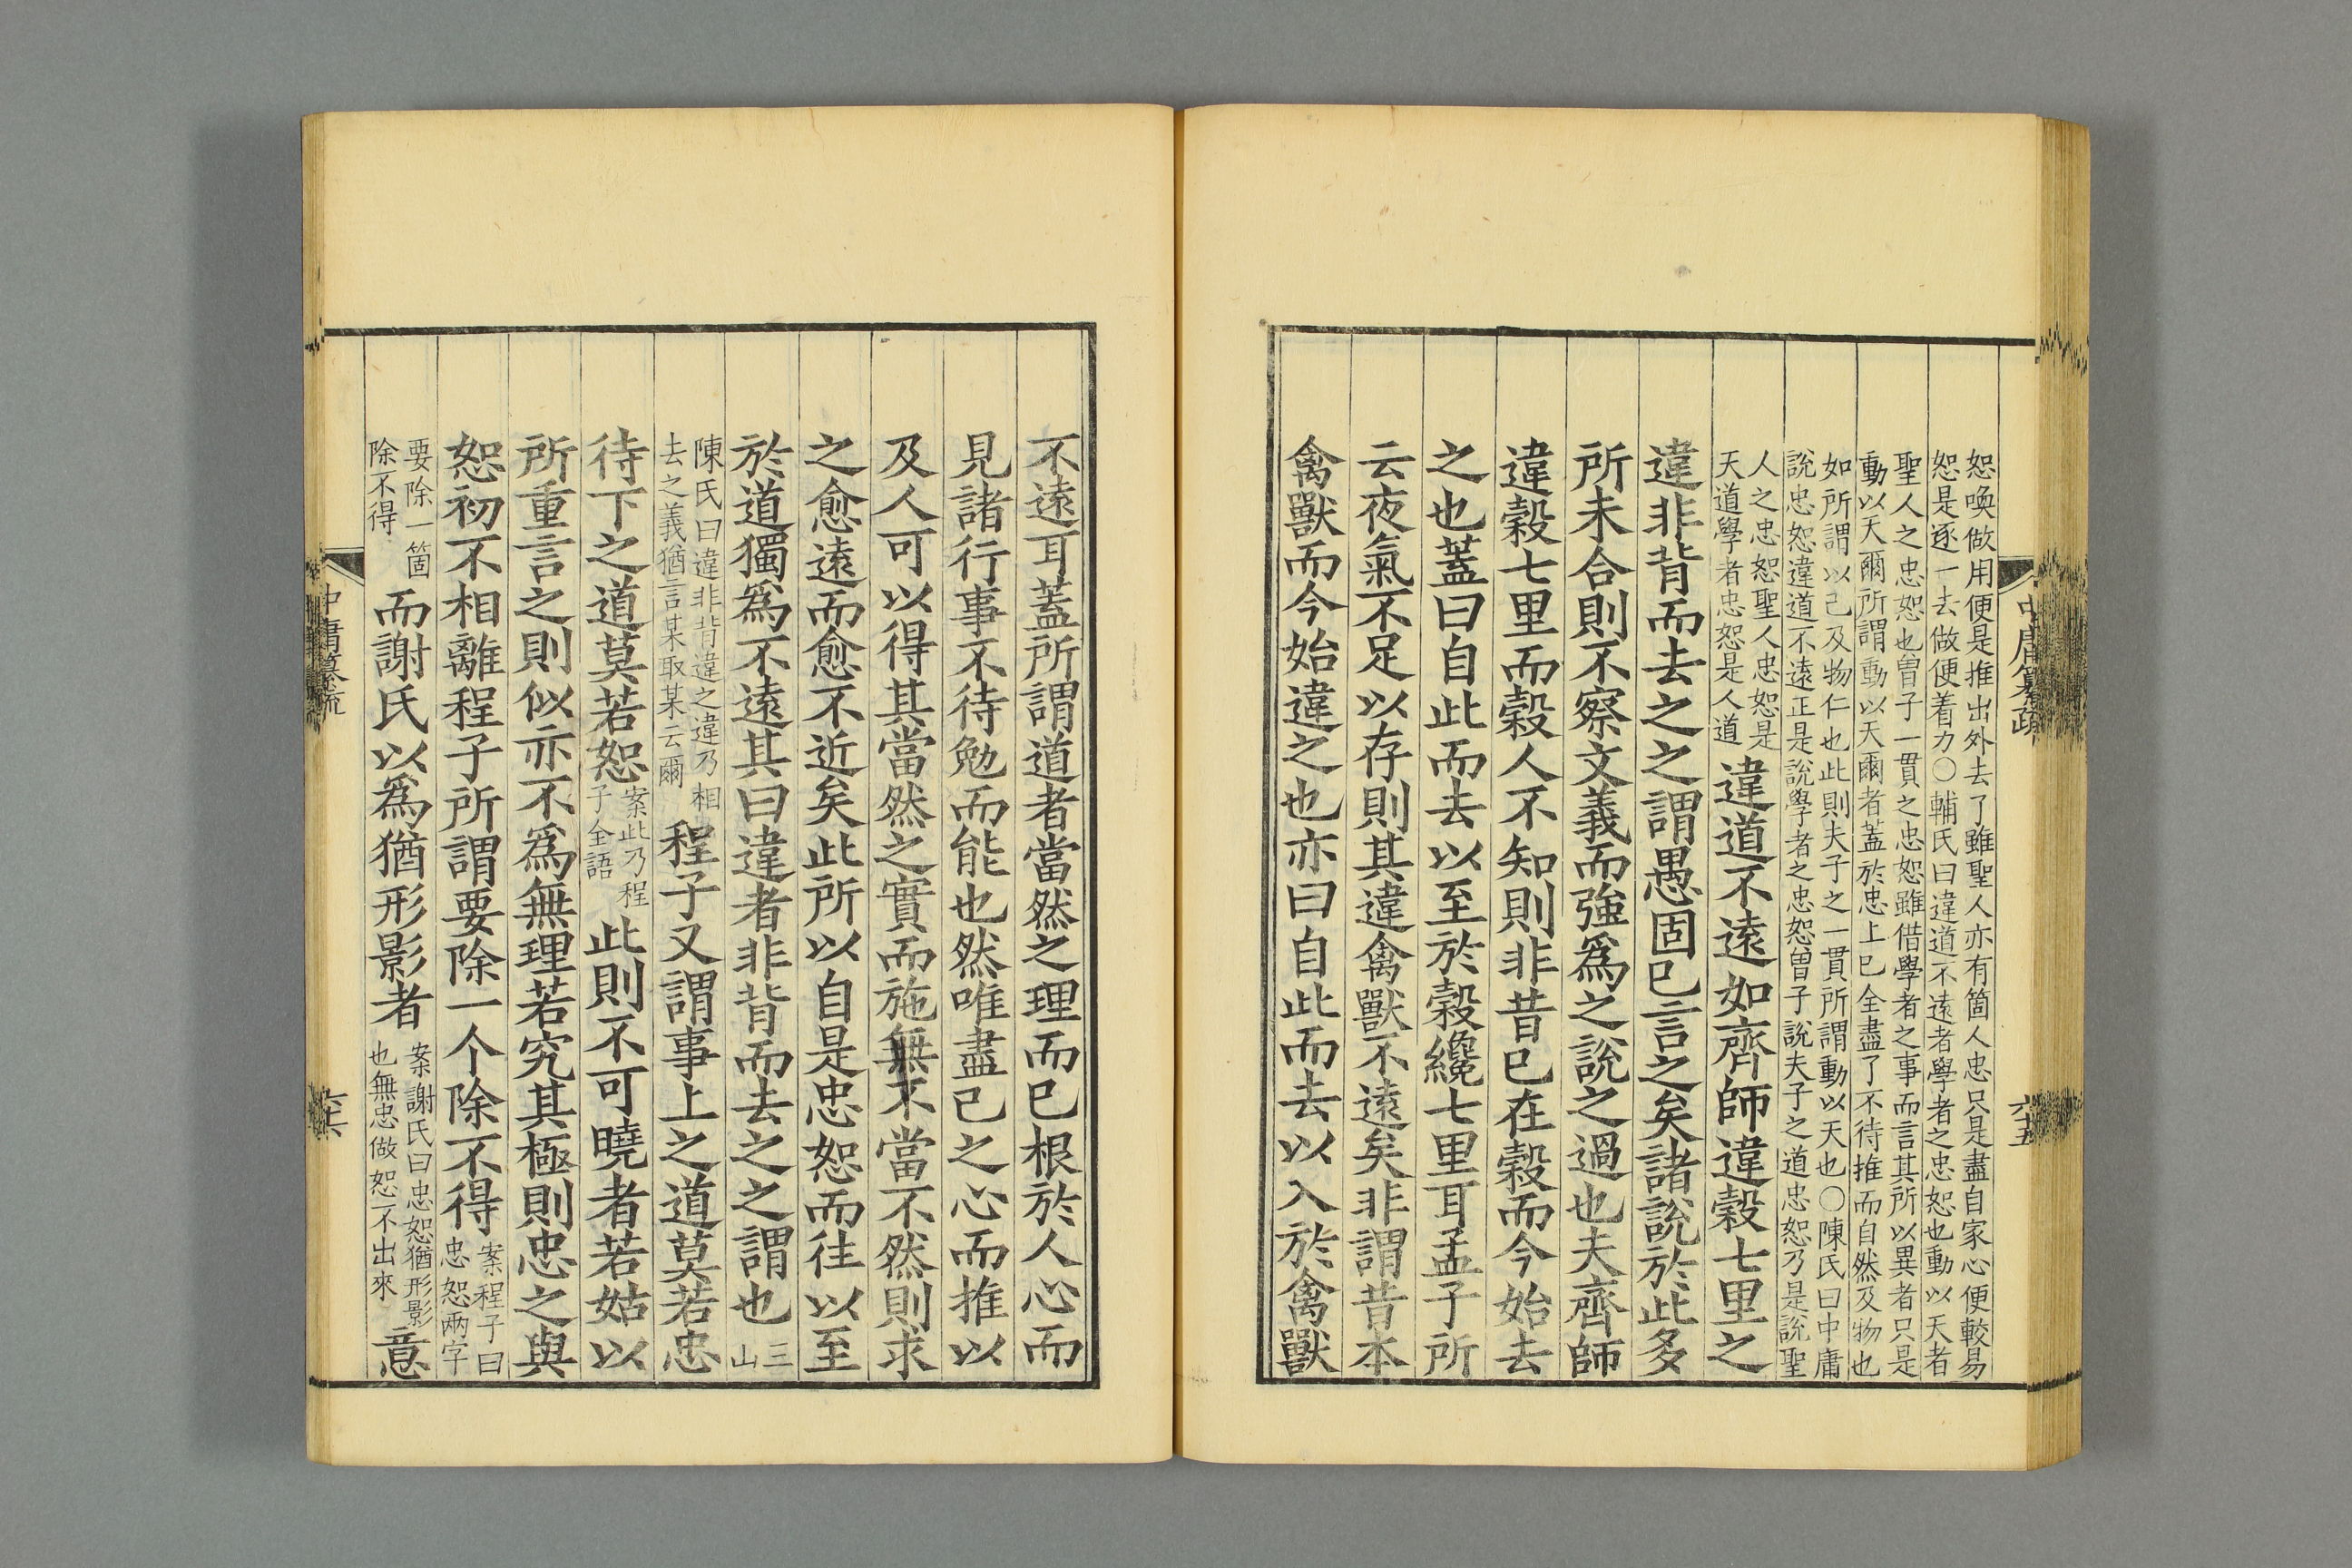 恕喚做用便是推出外去了雖聖人亦有箇人忠只是盡自家心便較易
恕是逐一去做便着力〇輔氏曰違道不遠者學者之忠恕也動以天者
聖人之忠恕也曽子一貫之忠恕雖借學者之事而言其所以異者只是
動以天爾所謂動以天爾者蓋於忠上已全盡了不待推而自然及物也
如所謂以己及物仁也此則夫子之一貫所謂動以天也〇陳氏曰中庸
說忠恕違道不遠正是說學者之忠恕曽子說夫子之道忠恕乃是說聖
人之忠恕聖人忠恕是
天道學者忠恕是人道
違道不遠如齊師違穀七里之
違非背而去之之謂愚固已言之矣諸說於此多
所未合則不察文義而強爲之說之過也夫齊師
違穀七里而穀人不知則非昔已在穀而今始去
之也蓋曰自此而去以至於穀纔七里耳孟子所
云夜氣不足以存則其違禽獸不遠矣非謂昔本
禽獸而今始違之也亦曰自此而去以入於禽獸
中庸纂疏
六十五
不遠耳蓋所謂道者當然之理而已根於人心而
見諸行事不待勉而能也然唯盡己之心而推以
及人可以得其當然之實而施無不當不然則求
之愈遠而愈不近矣此所以自是忠恕而往以至
於道獨爲不遠其曰違者非背而去之之謂也
三
山
陳氏曰違非背違之違乃相
去之義猶言某取某云爾
程子又謂事上之道莫若忠
待下之道莫若恕
案此乃程
子全語
此則不可曉者若姑以
所重言之則似亦不爲無理若究其極則忠之與
恕初不相離程子所謂要除一个除不得
案程子曰
忠恕两字
要除一箇
除不得
而謝氏以爲猶形影者
案謝氏曰忠恕猶形影
也無忠做恕不出來
意
中庸纂疏